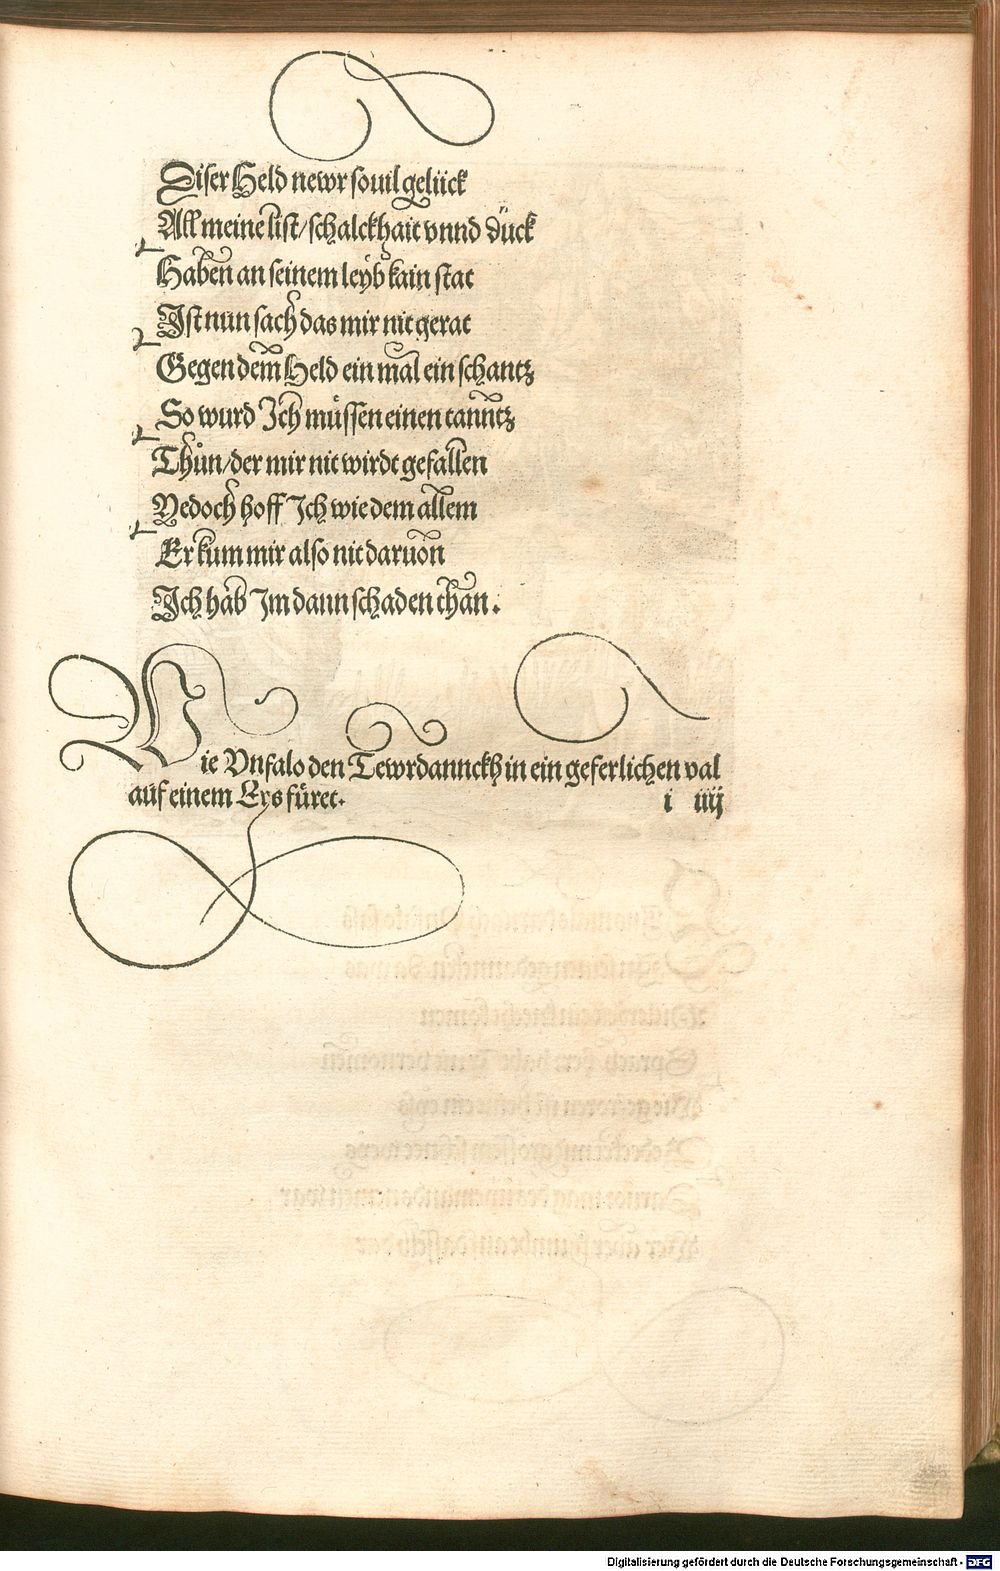 Diser Held newr souil gelück
All meine list/schalckhait vnnd dück
Haben an seinem leyb kain stat
Ist nun sach das mir nit gerat
Gegen dem Held ein mal ein schantz
So wurd Ich müssen einen tanntz
Thůn/der mir nit wirdt gefallen
Yedoch hoff Ich wie dem allem
Er kum mir also nit daruon
Ich hab Im dann schaden than.
Wie Vnfalo den Tewrdannckh in ein geferlichen val
auf einem Eys füret.
i iiij
Digitalisierung gefördert durch die Deutsche Forschungsgemeinschaft - DFG